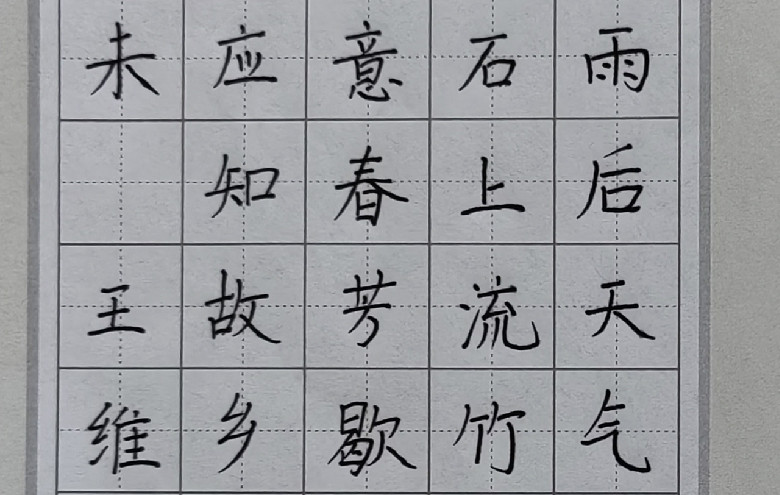 雨后天气
石上流竹
意春芳歇
应知故乡
未 王维